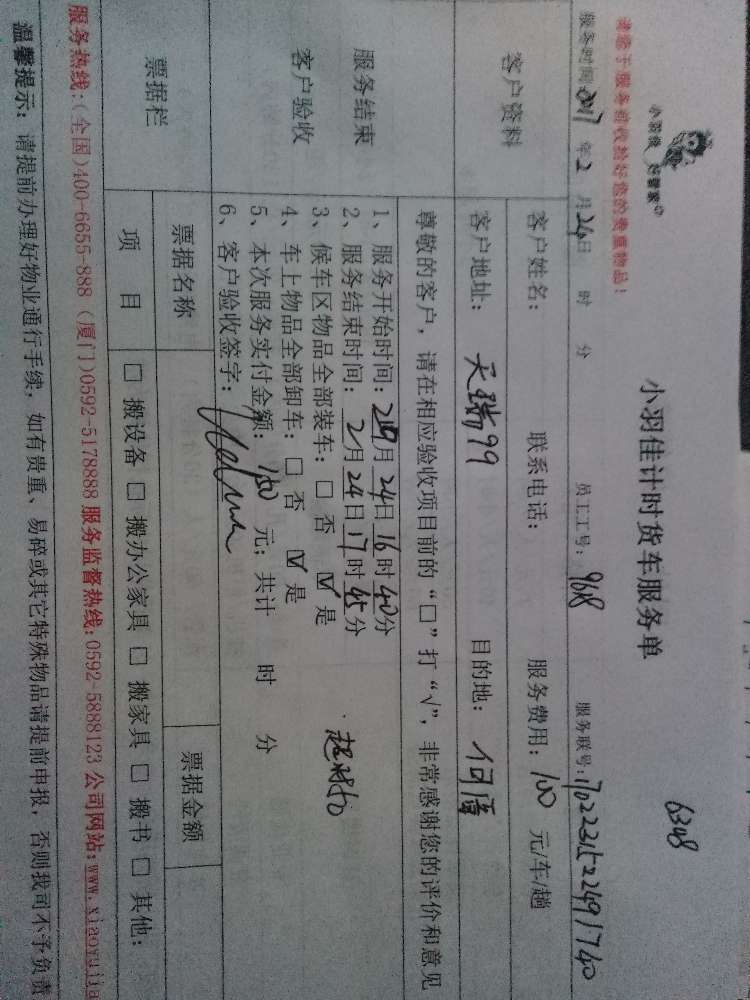 小羽佳 好管家
请您于服务前收拾好您的贵重物品!
小羽佳计时货车服务单
6348
服务时间2017年2月24日 时 分 员工工号: 968 服务联号:1702231522491740
客户资料
客户姓名: 联系电话: 服务费用: 100 元/车/趟
客户地址: 天瑞99 目的地: 何厝
服务结束
客户验收
尊敬的客户,请在相应验收项目前的“□”打“√”,非常感谢您的评价和意见
1、服务开始时间:2月24日16时40分
2、服务结束时间:2月24日17时45分
3、候车区物品全部装车:□ 否 ☑ 是
4、车上物品全部卸车:□ 否 ☑ 是
5、本次服务实付金额:150 元;共计 时 分
6、客户验收签字:
票据栏
票据名称 票据金额
项 目 □ 搬设备 □ 搬办公家具 □ 搬家具 □ 搬书 □ 其他:
服务热线:(全国)400-6655-888 (厦门)0592-5178888 服务监督热线:0592-5888123 公司网站:www.xiaoyujia
温馨提示:请提前办理好物业通行手续,如有贵重、易碎或其它特殊物品请提前申报,否则我司不予负责